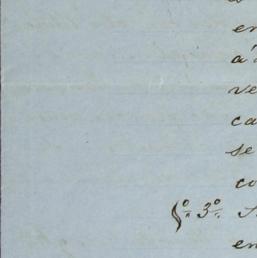 en
a'
ve
ca
se
co
§º 3º
en